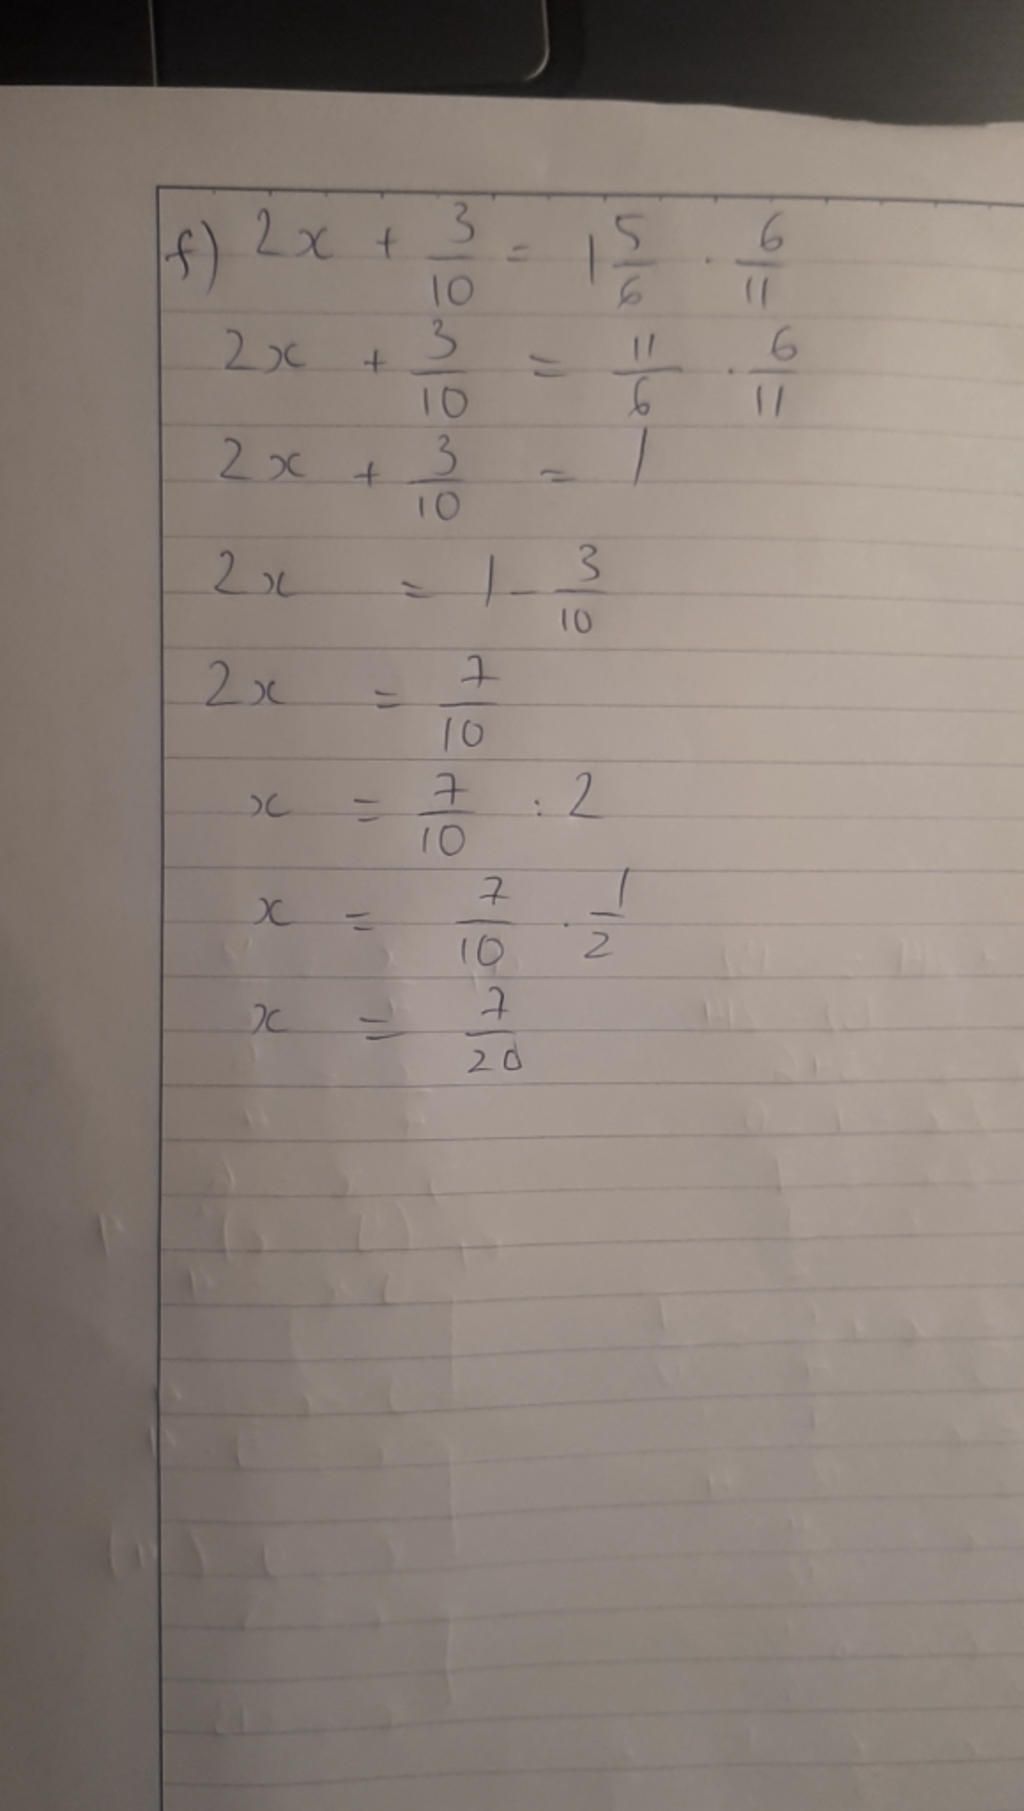 f) 2x + 3/10 = 1 5/6 · 6/11
2x + 3/10 = 11/6 · 6/11
2x + 3/10 = 1
2x = 1 - 3/10
2x = 7/10
x = 7/10 : 2
x = 7/10 · 1/2
x = 7/20